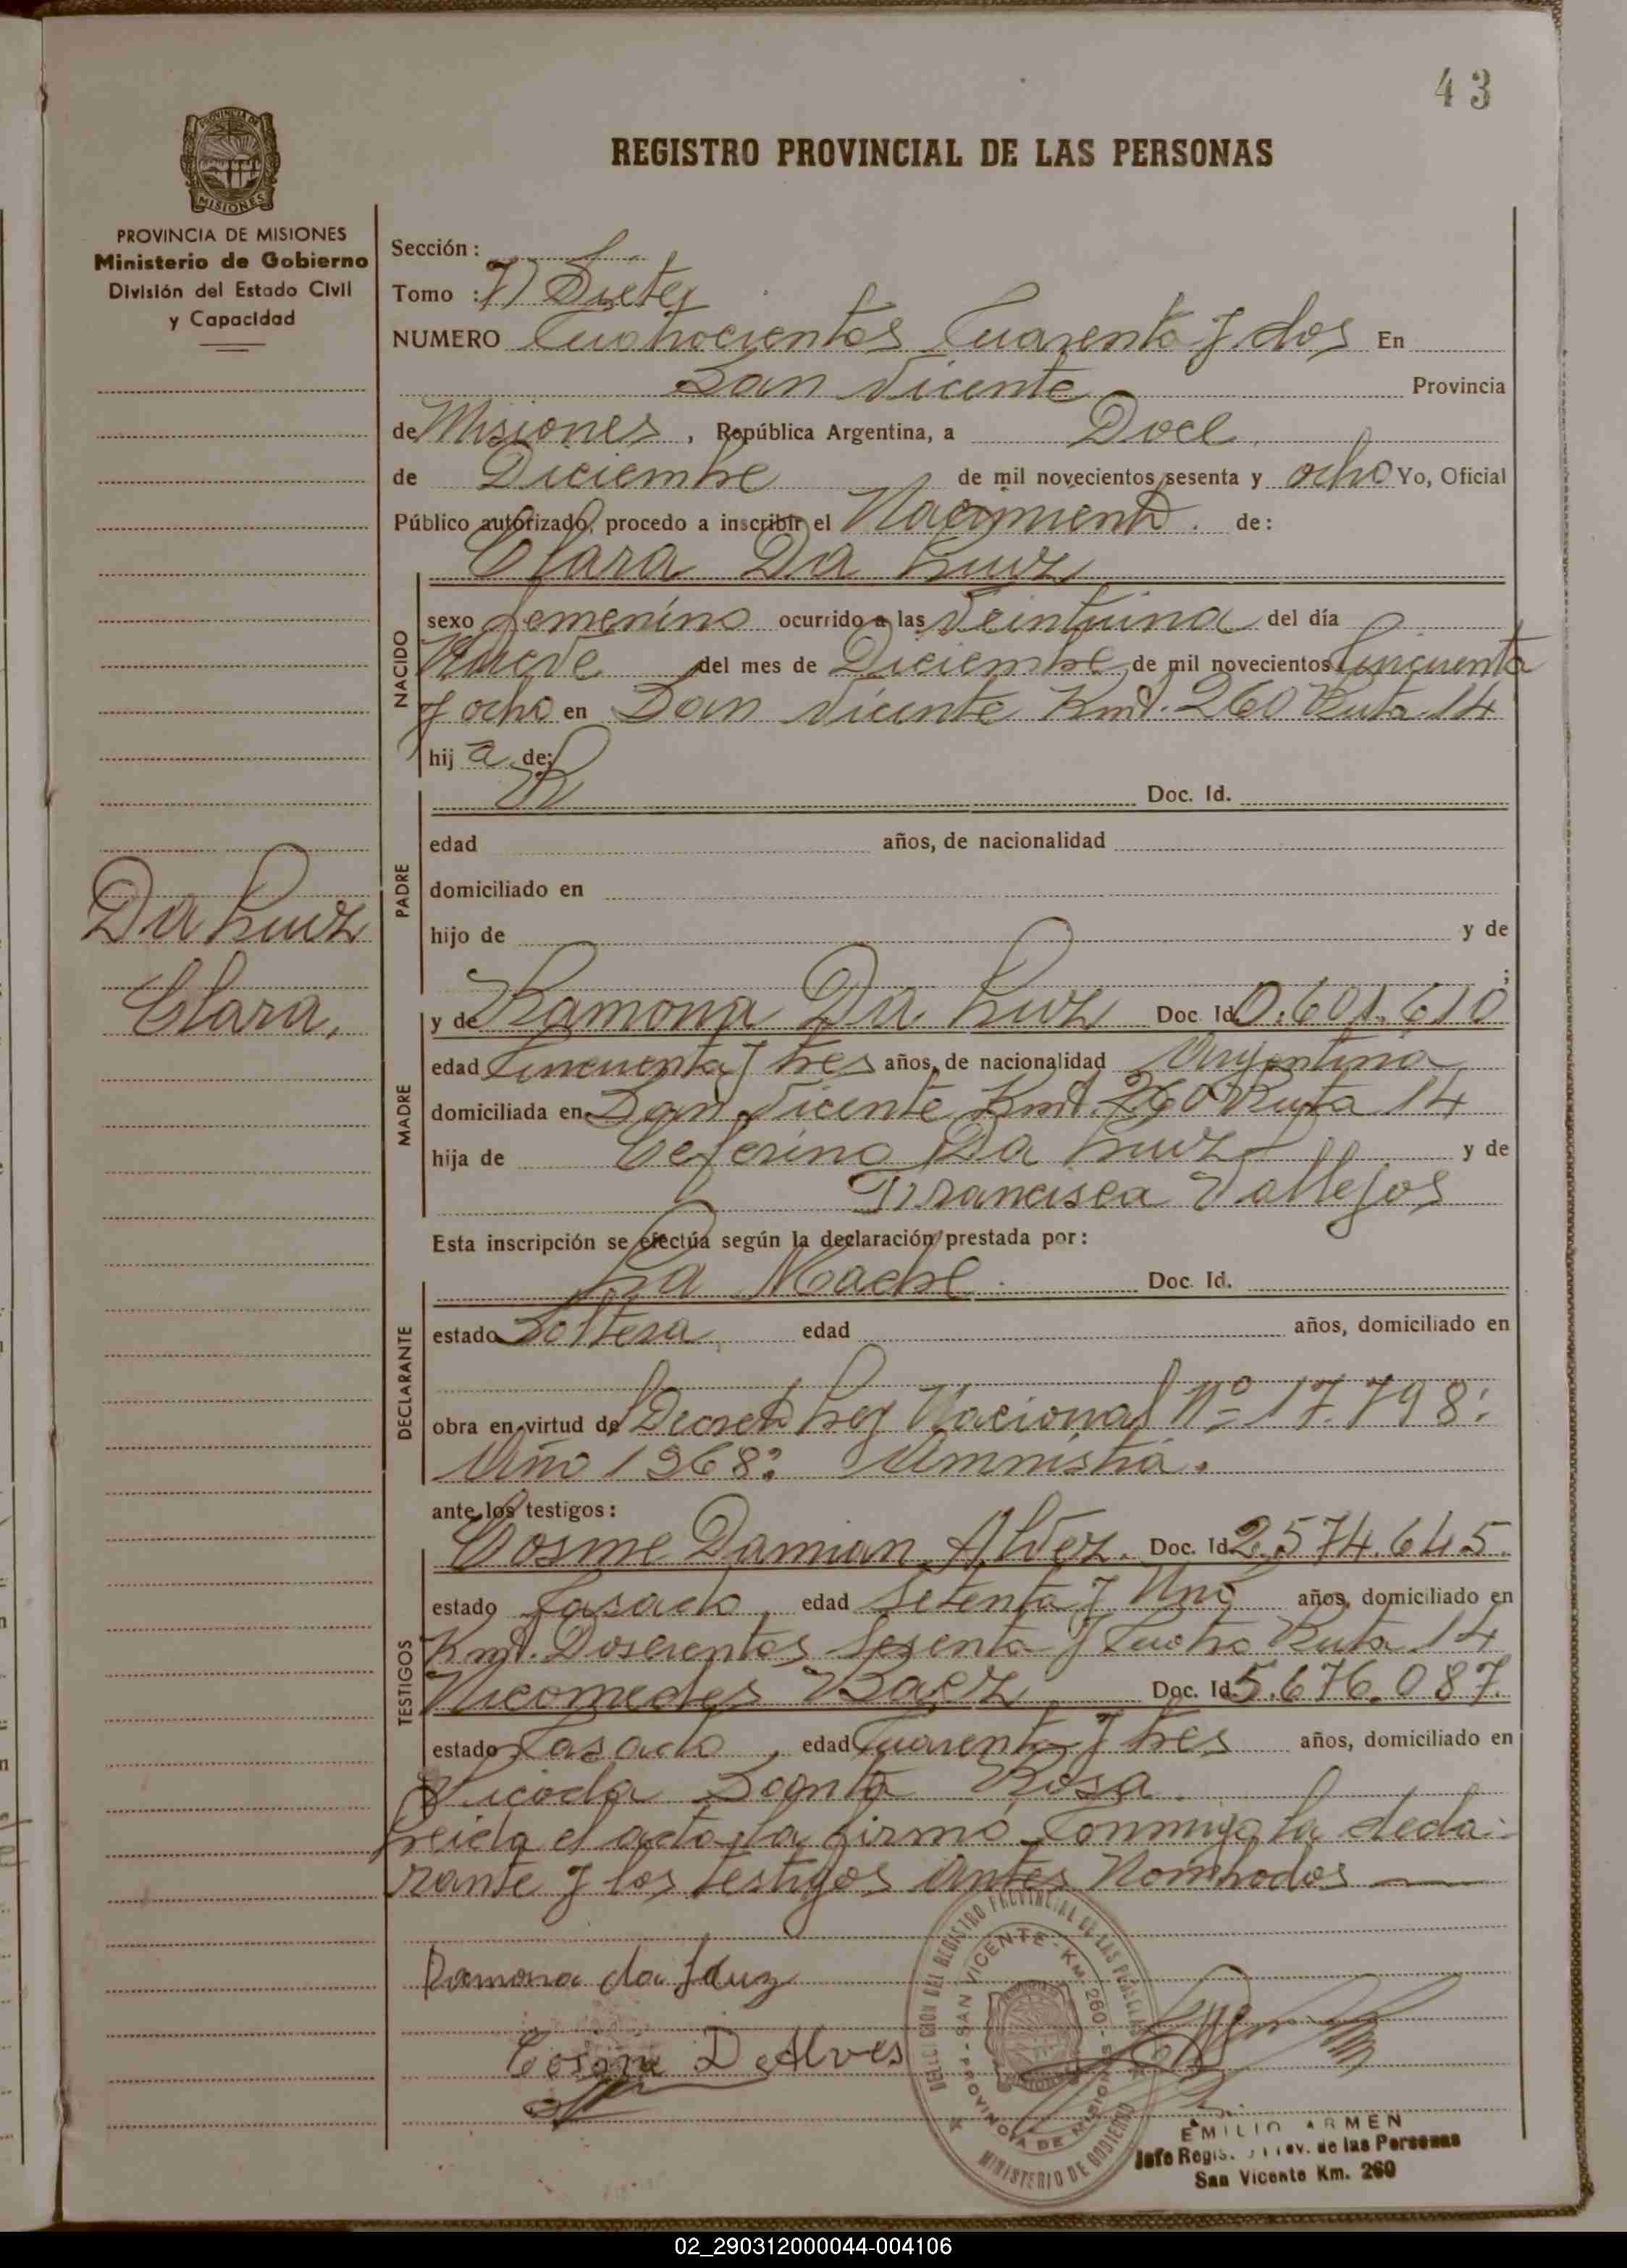 43
MISIONES
PROVINCIA DE MISIONES
Ministerio de Gobierno
División del Estado Civil
y Capacidad
REGISTRO PROVINCIAL DE LAS PERSONAS
Sección:
Tomo : 7) Siete)
NUMERO Cuatrocientos Cuarenta y dos En
San Vicente Provincia
de Misiones, República Argentina, a Doce
de Diciembre de mil novecientos sesenta y ocho Yo, Oficial
Público autorizado, procedo a inscribir el Nacimiento. de:
Clara Da Luz
NACIDO
sexo femenino ocurrido a las Veintiuna del día
Nueve del mes de Diciembre de mil novecientos Cincuenta
y ocho en San Vicente Kmt. 260 Ruta 14
hij a de:
PADRE
Doc. Id.
edad años, de nacionalidad
domiciliado en
hijo de y de
;
Da Luz
Clara,
MADRE
y de Ramona Da Luz Doc. Id. 0.601.610
edad Cincuenta y tres años, de nacionalidad Argentina
domiciliada en San Vicente Kmt. 260 Ruta 14
hija de Ceferino Da Luz y de
Francisca Vallejos
Esta inscripción se efectúa según la declaración prestada por:
DECLARANTE
La Madre. Doc. Id.
estado Soltera, edad años, domiciliado en
obra en virtud de Decreto Ley Nacional Nº 17.798:
Año 1968: Amnistia.
ante los testigos:
TESTIGOS
Cosme Damian Alvez. Doc. Id. 2.574.645.
estado Casado, edad Setenta y Uno años, domiciliado en
Kmt. Doscientos Sesenta y Cuatro Ruta 14
Nicomedes Baez Doc. Id. 5.676.087.
estado Casado, edad Cuarenta y tres años, domiciliado en
Picada Santa Rosa.
Leida el acta, la firmó Conmigo, la decla-
rante y los testigos antes Nombrados
Ramona da Luz
Cosme D. Alves
DEL REGISTRO PROVINCIAL DE LAS PERSONAS
SAN VICENTE - KM. 260 -
PROVINCIA DE MISIONES
MINISTERIO DE GOBIERNO
EMILIO ARMEN
Jefe Regis. Prov. de las Personas
San Vicente Km. 260
02_290312000044-004106